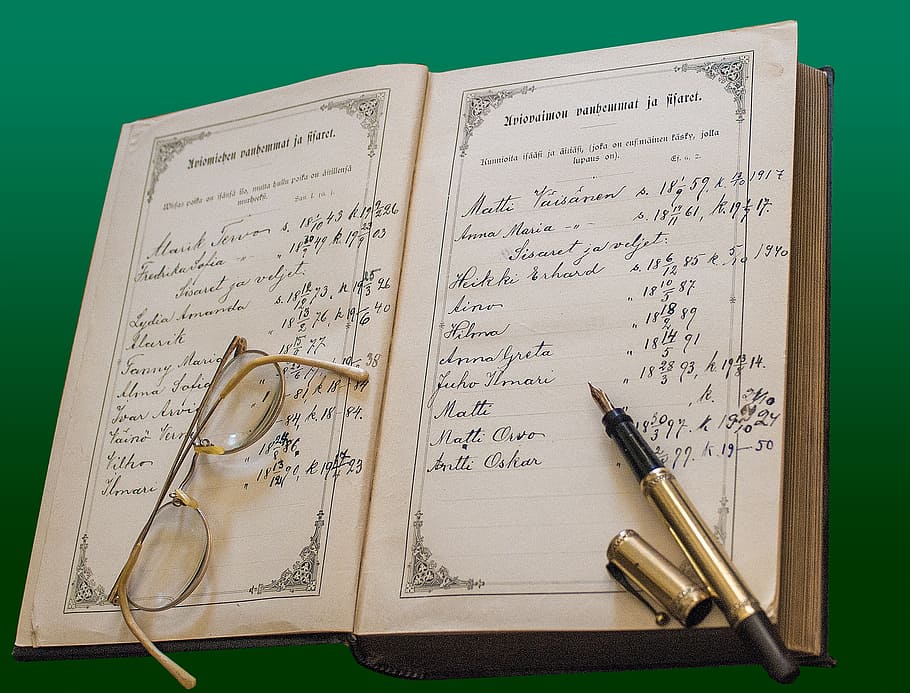 Aviomiehen vanhemmat ja sisaret.
Viisas poika on isänsä ilo, mutta hullu poika on äitillensä
murheeksi. San. l. 10, 1.
Alarik Tervo s. 18 43 k. 19 26
Fredrika Sofia -"- " 18 49 k. 19 03
Sisaret ja veljet:
Lydia Amanda s. 18 73, k. 19 25/3 26
Alarik " 18 13/2 76, k. 19 /6 40
Fanny Maria 18 15/9 77
Alma Sofia 38
Ivar Arvi " 1 -81, k. 18 -84.
Väinö -84, k. 18 -84.
Vilho " 18 86
Ilmari " 18 13/12 90, k. 19 23
Aviovaimon vanhemmat ja sisaret.
Kunnioita isääsi ja äitiäsi, (joka on ensimäinen käsky, jolla
lupaus on). Ef. 6, 2.
Matti Väisänen s. 18 1/9 59, k. 13/10 1917
Anna Maria -"- s. 18 17/11 61, k. 19 17.
Sisaret ja veljet:
Heikki Erhard s. 18 6/12 85 k. 5/10 1940
Aino " 18 10/5 87
Hilma " 18 18/2 89
Anna Greta " 18 14/5 91
Juho Ilmari " 18 28/3 93, k. 19 13/8 14.
Matti k.
Matti Orvo 18 30/3 97. k. 19 24
Antti Oskar " 99. k. 19 -50